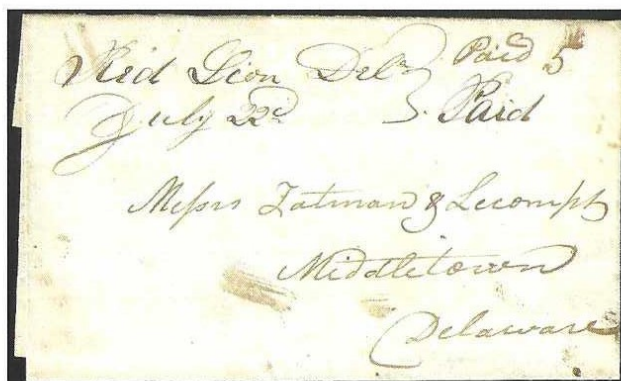 Red Lion Del. Paid 5
July 22d Paid
Messrs Tatman & Lecompt
Middletown
Delaware